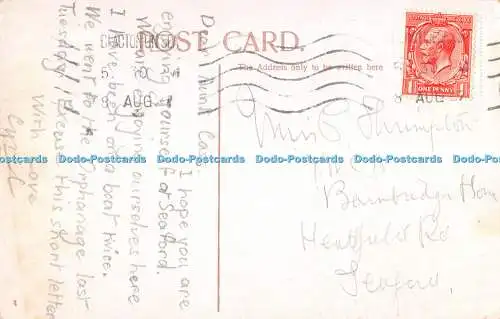 POST CARD.
The Address only to be written here
CLACTON-ON-SEA
5
8 AUG
5
8 AUG
POSTAGE
ONE PENNY
Dear Aunt Cass. I hope you are
enjoying yourself at Seaford.
We are enjoying ourselves here
I have been on a boat twice.
We went to the Orphanage last
Tuesday. Excuse this short letter
With love
Cyril
Miss Thrumpston
Bainbridge Home
Heathfield Rd
Seaford.
Dodo-Postcards Dodo-Postcards Dodo-Postcards Dodo-Postcards Dodo-Postcards Dodo-Postcards